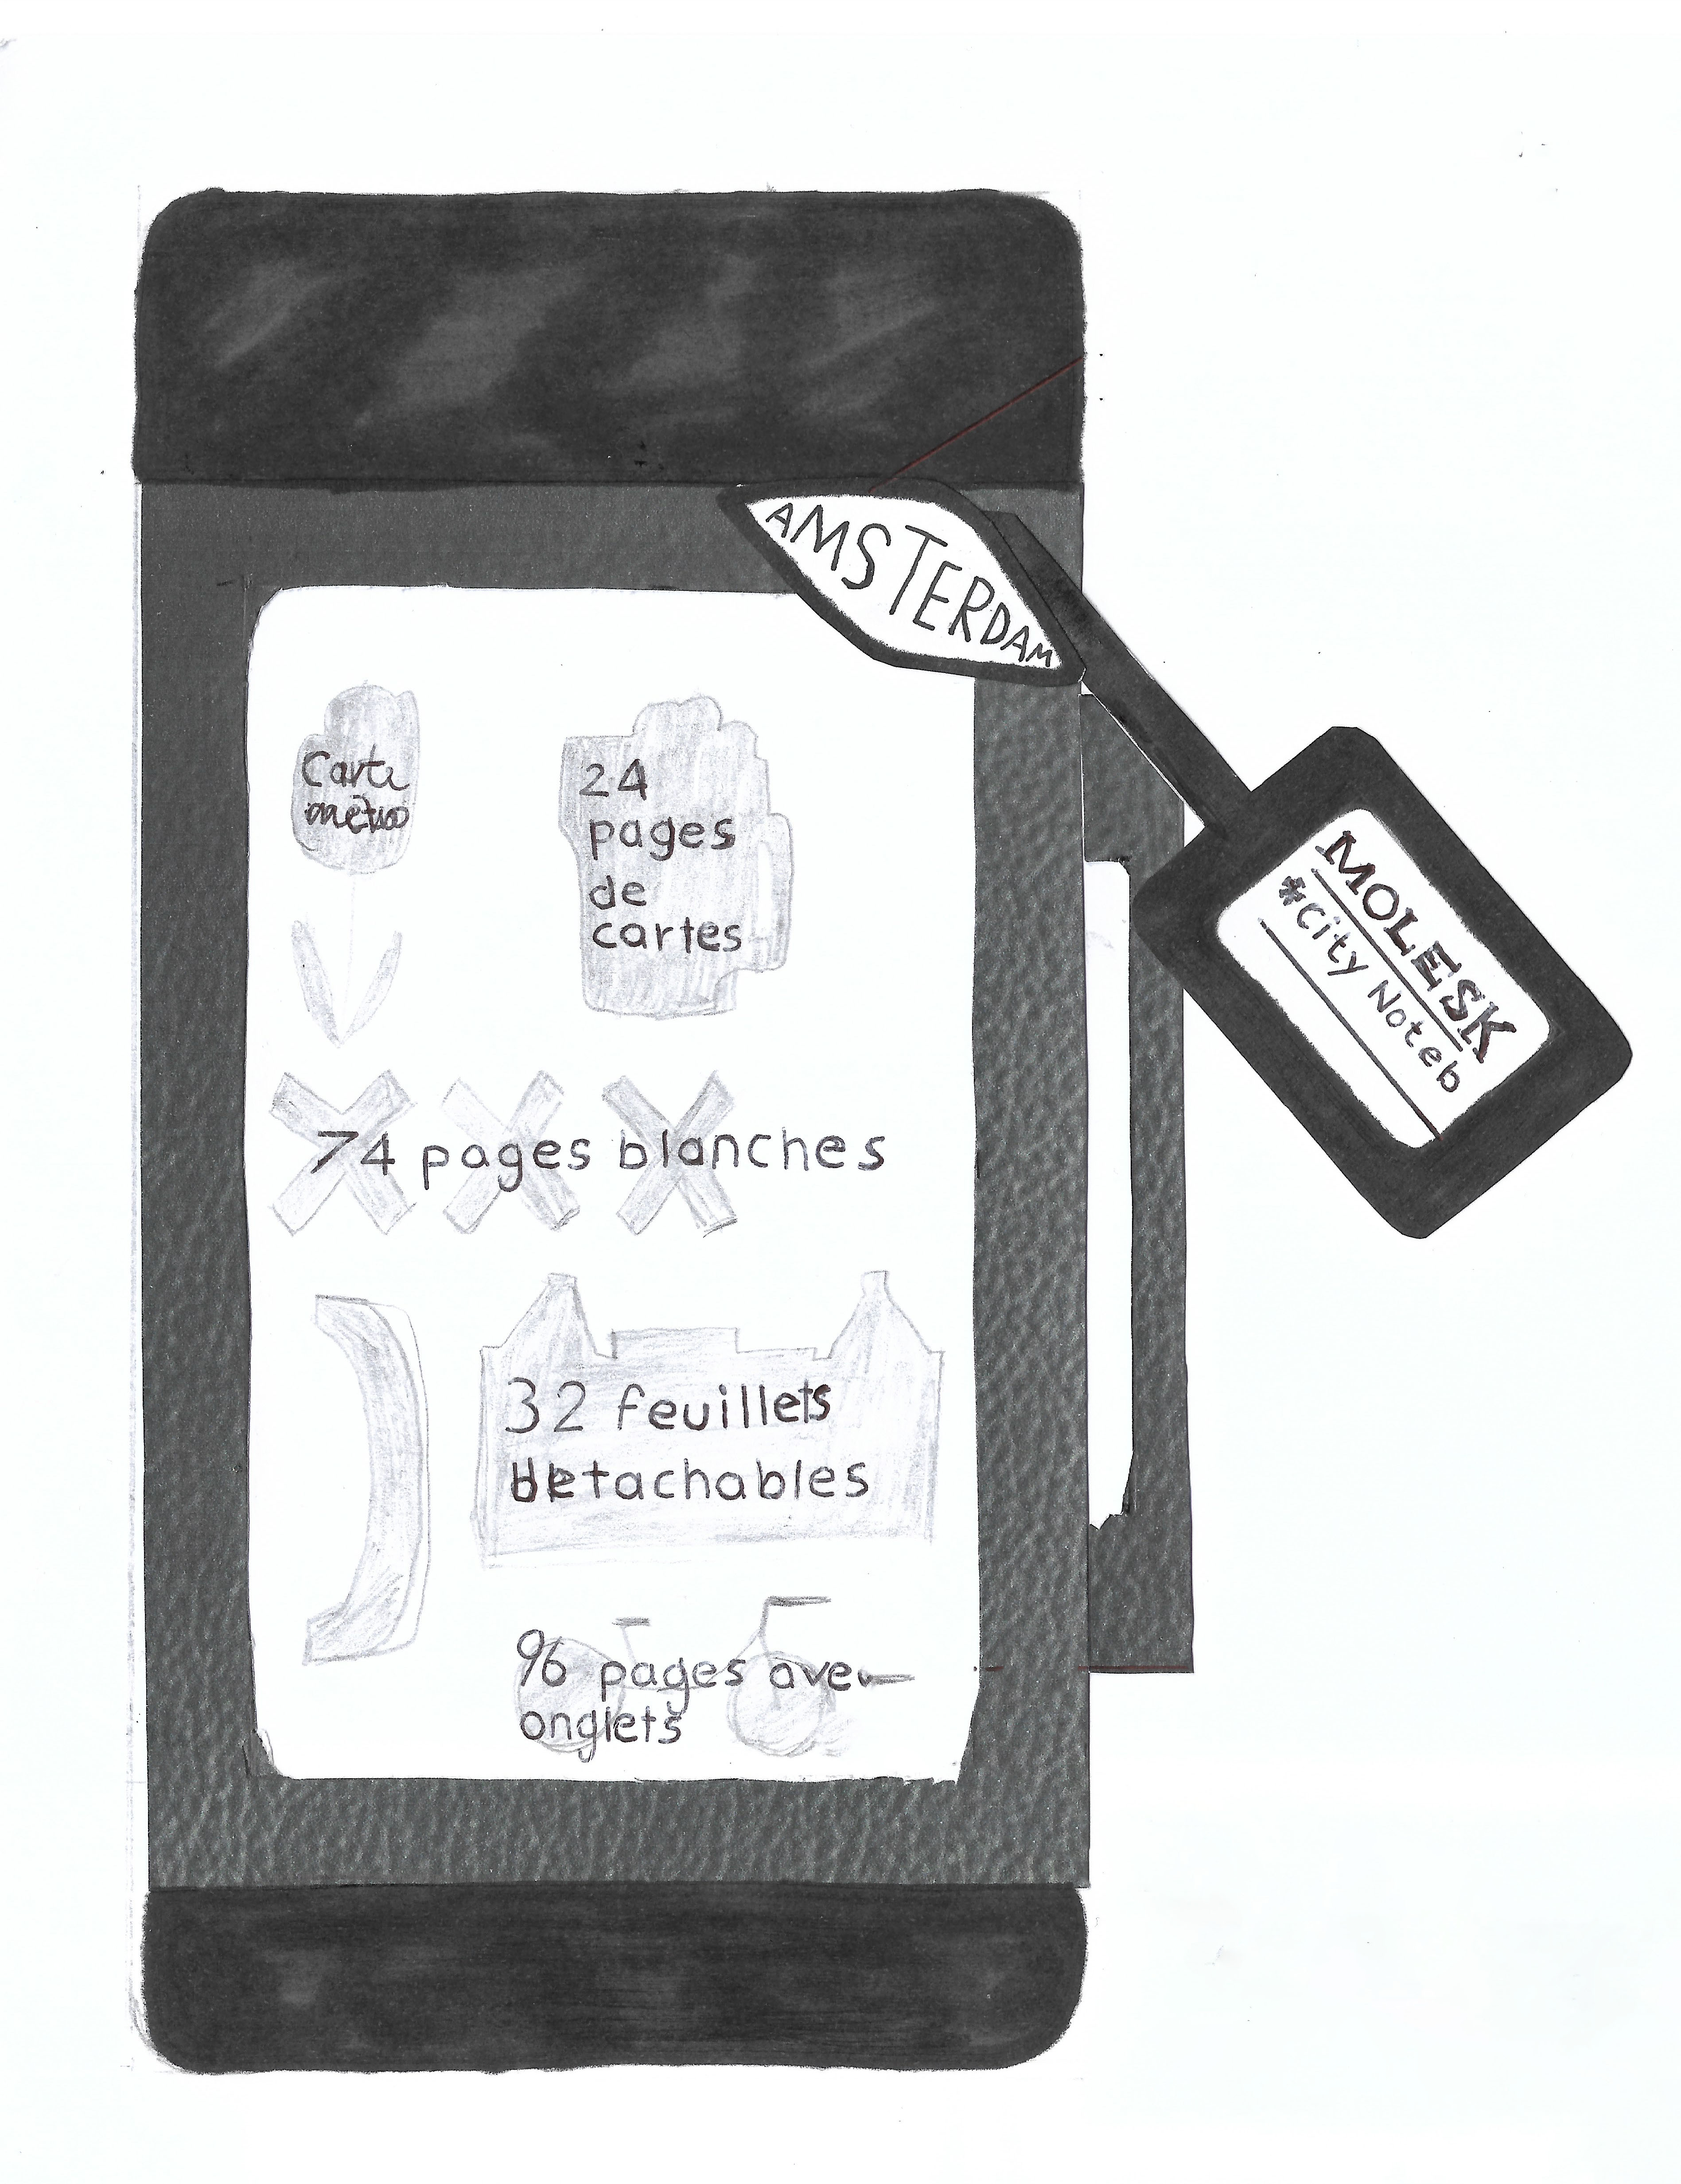 AMSTERDAM
MOLESK
*City Noteb
Carte
métro
24
pages
de
cartes
74 pages blanches
32 feuillets
detachables
96 pages ave
onglets